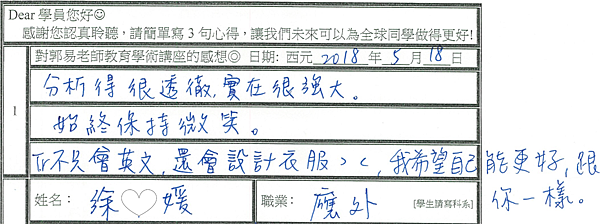 Dear 學員您好☺
感謝您認真聆聽，請簡單寫 3 句心得，讓我們未來可以為全球同學做得更好!
對郭易老師教育學術講座的感想☺ 日期: 西元 2018 年 5 月 18 日
1
分析得很透徹，實在很強大。
始終保持微笑。
Tr不只會英文，還會設計衣服><，我希望自己能更好，跟
你一樣。
姓名： 徐♡媛 職業： 應外 [學生請寫科系]